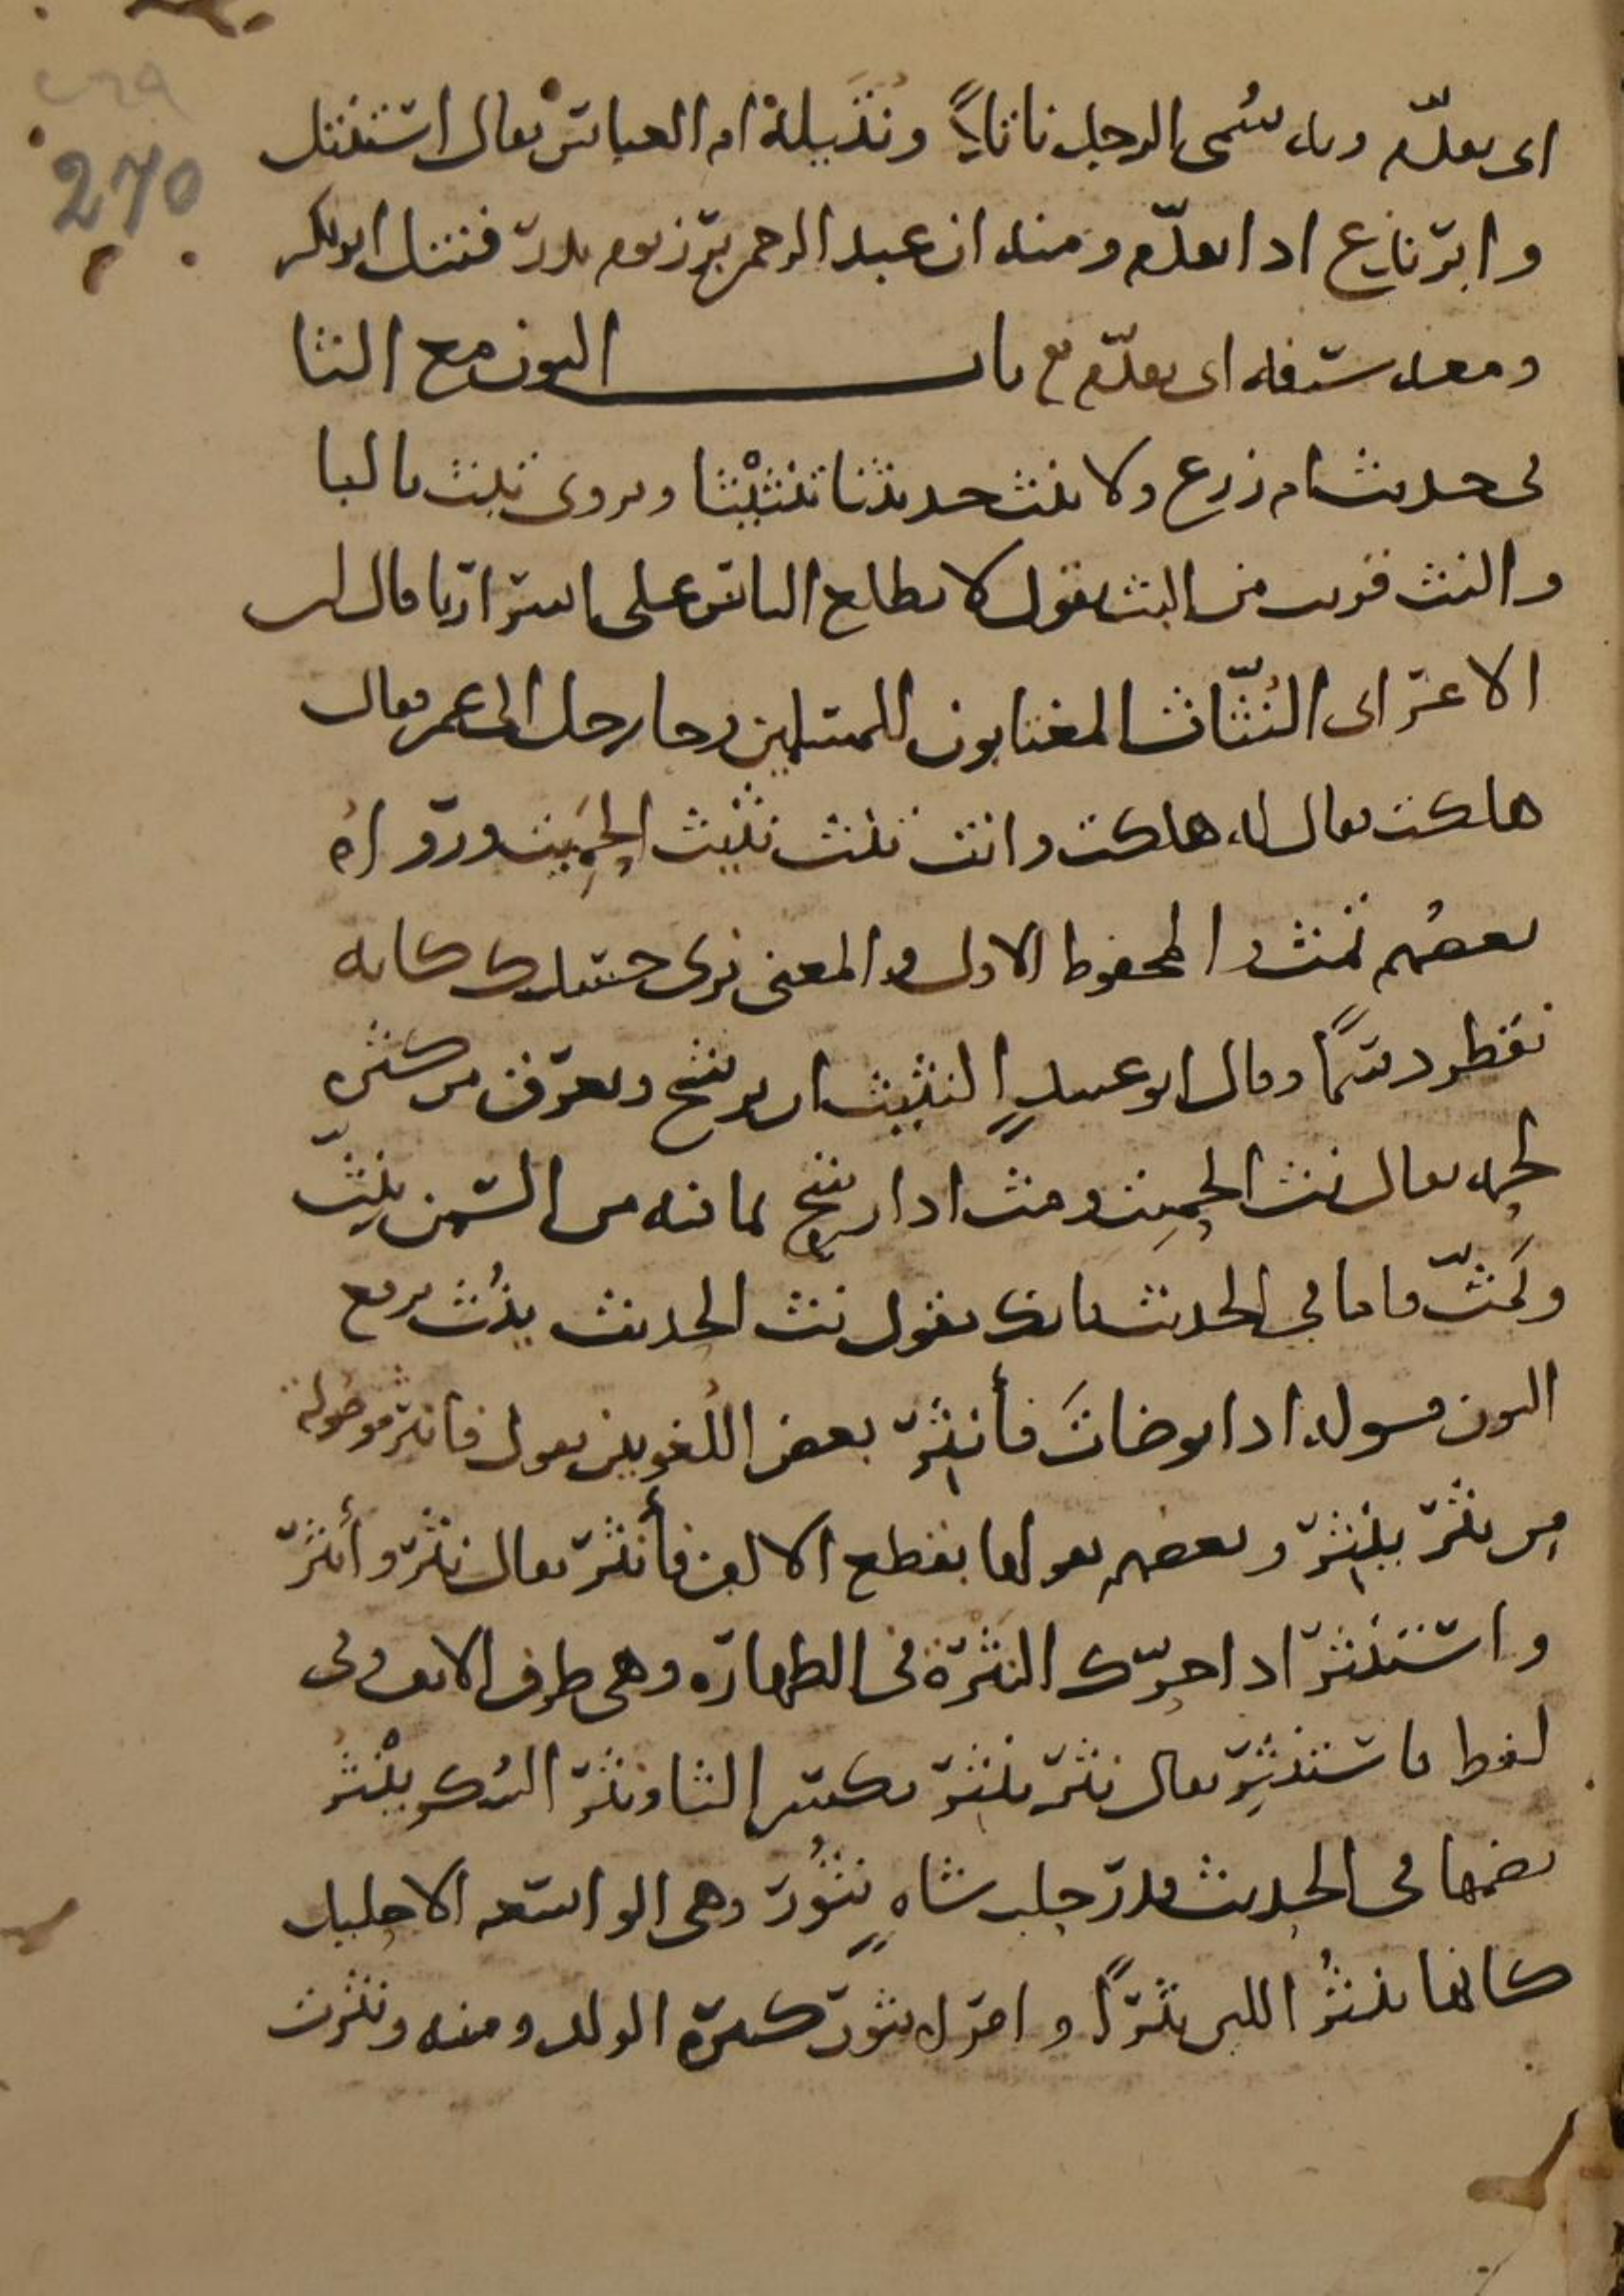 ٢٦٩
270
اى تقدّم وبه سُمى الرجل ناتلاً ونُتَيلة ام العباس يقال استنتل
وابرنذع اذا تقدّم ومنه ان عبد الرحمن برز يوم بدر فنتل ابو بكر
ومعه سيفه اى تقدّم باب النون مع الثا
فى حديث ام زرع ولا تنث حديثنا تنثيثا ويروى تبث بالبا
والنث قريب من البث تقول لا تطلع الناس على اسرارنا قال ابن
الاعرابى النُثّاث المغتابون للمسلمين وجا رجل الى عمر فقال
هلكت فقال له هلكت وانت تنث نثيث الحَمِيت ورواه
بعضهم تمث والمحفوظ الاول والمعنى نرى جسدك كانه
يقطر دسمًا وقال ابو عبيدٍ النثيث ان يرشح ويعرق من كثرة
لحمه يقال نث الحميت ومث اذا رشح بما فيه من السمن ينِثّ
ويَمِثّ فاما فى الحديث فانك تقول نث الحديث ينُث برفع
النون قوله اذا توضات فأنثر بعض اللُغويين يقول فانثر موصوله
من نثر ينثِر وبعضهم يقولها بقطع الالف فأنثر يقال نثر وأنثر
واستنثر اذا حرّك النَثرة فى الطهارة وهى طرف الانف وفى
لفظ فاستنثِر يقال نثر ينثِر بكسر الثا ونثر السُكر ينْثُر
بضمها فى الحديث قدر حلب شاةٍ نَثُور وهى الواسعه الاحليل
كانها تنثُر اللبن نثرًا وامراه نثور كثيرة الولد ومنه ونثرت